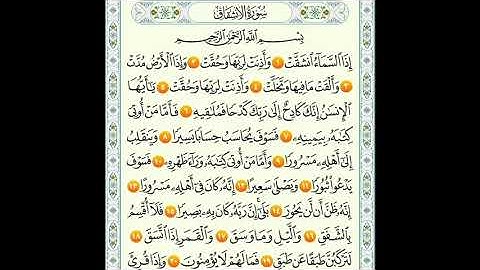 سُورَةُ الِانْشِقَاقِ
بِسْمِ اللَّهِ الرَّحْمَٰنِ الرَّحِيمِ
إِذَا السَّمَاءُ انْشَقَّتْ ١ وَأَذِنَتْ لِرَبِّهَا وَحُقَّتْ ٢ وَإِذَا الْأَرْضُ مُدَّتْ
٣ وَأَلْقَتْ مَا فِيهَا وَتَخَلَّتْ ٤ وَأَذِنَتْ لِرَبِّهَا وَحُقَّتْ ٥ يَٰأَيُّهَا
الْإِنْسَٰنُ إِنَّكَ كَادِحٌ إِلَىٰ رَبِّكَ كَدْحًا فَمُلَٰقِيهِ ٦ فَأَمَّا مَنْ أُوتِيَ
كِتَٰبَهُ بِيَمِينِهِ ٧ فَسَوْفَ يُحَاسَبُ حِسَابًا يَسِيرًا ٨ وَيَنْقَلِبُ
إِلَىٰ أَهْلِهِ مَسْرُورًا ٩ وَأَمَّا مَنْ أُوتِيَ كِتَٰبَهُ وَرَاءَ ظَهْرِهِ ١٠ فَسَوْفَ
يَدْعُوا ثُبُورًا ١١ وَيَصْلَىٰ سَعِيرًا ١٢ إِنَّهُ كَانَ فِي أَهْلِهِ مَسْرُورًا ١٣
إِنَّهُ ظَنَّ أَنْ لَنْ يَحُورَ ١٤ بَلَىٰ إِنَّ رَبَّهُ كَانَ بِهِ بَصِيرًا ١٥ فَلَا أُقْسِمُ
بِالشَّفَقِ ١٦ وَاللَّيْلِ وَمَا وَسَقَ ١٧ وَالْقَمَرِ إِذَا اتَّسَقَ ١٨
لَتَرْكَبُنَّ طَبَقًا عَنْ طَبَقٍ ١٩ فَمَا لَهُمْ لَا يُؤْمِنُونَ ٢٠ وَإِذَا قُرِئَ